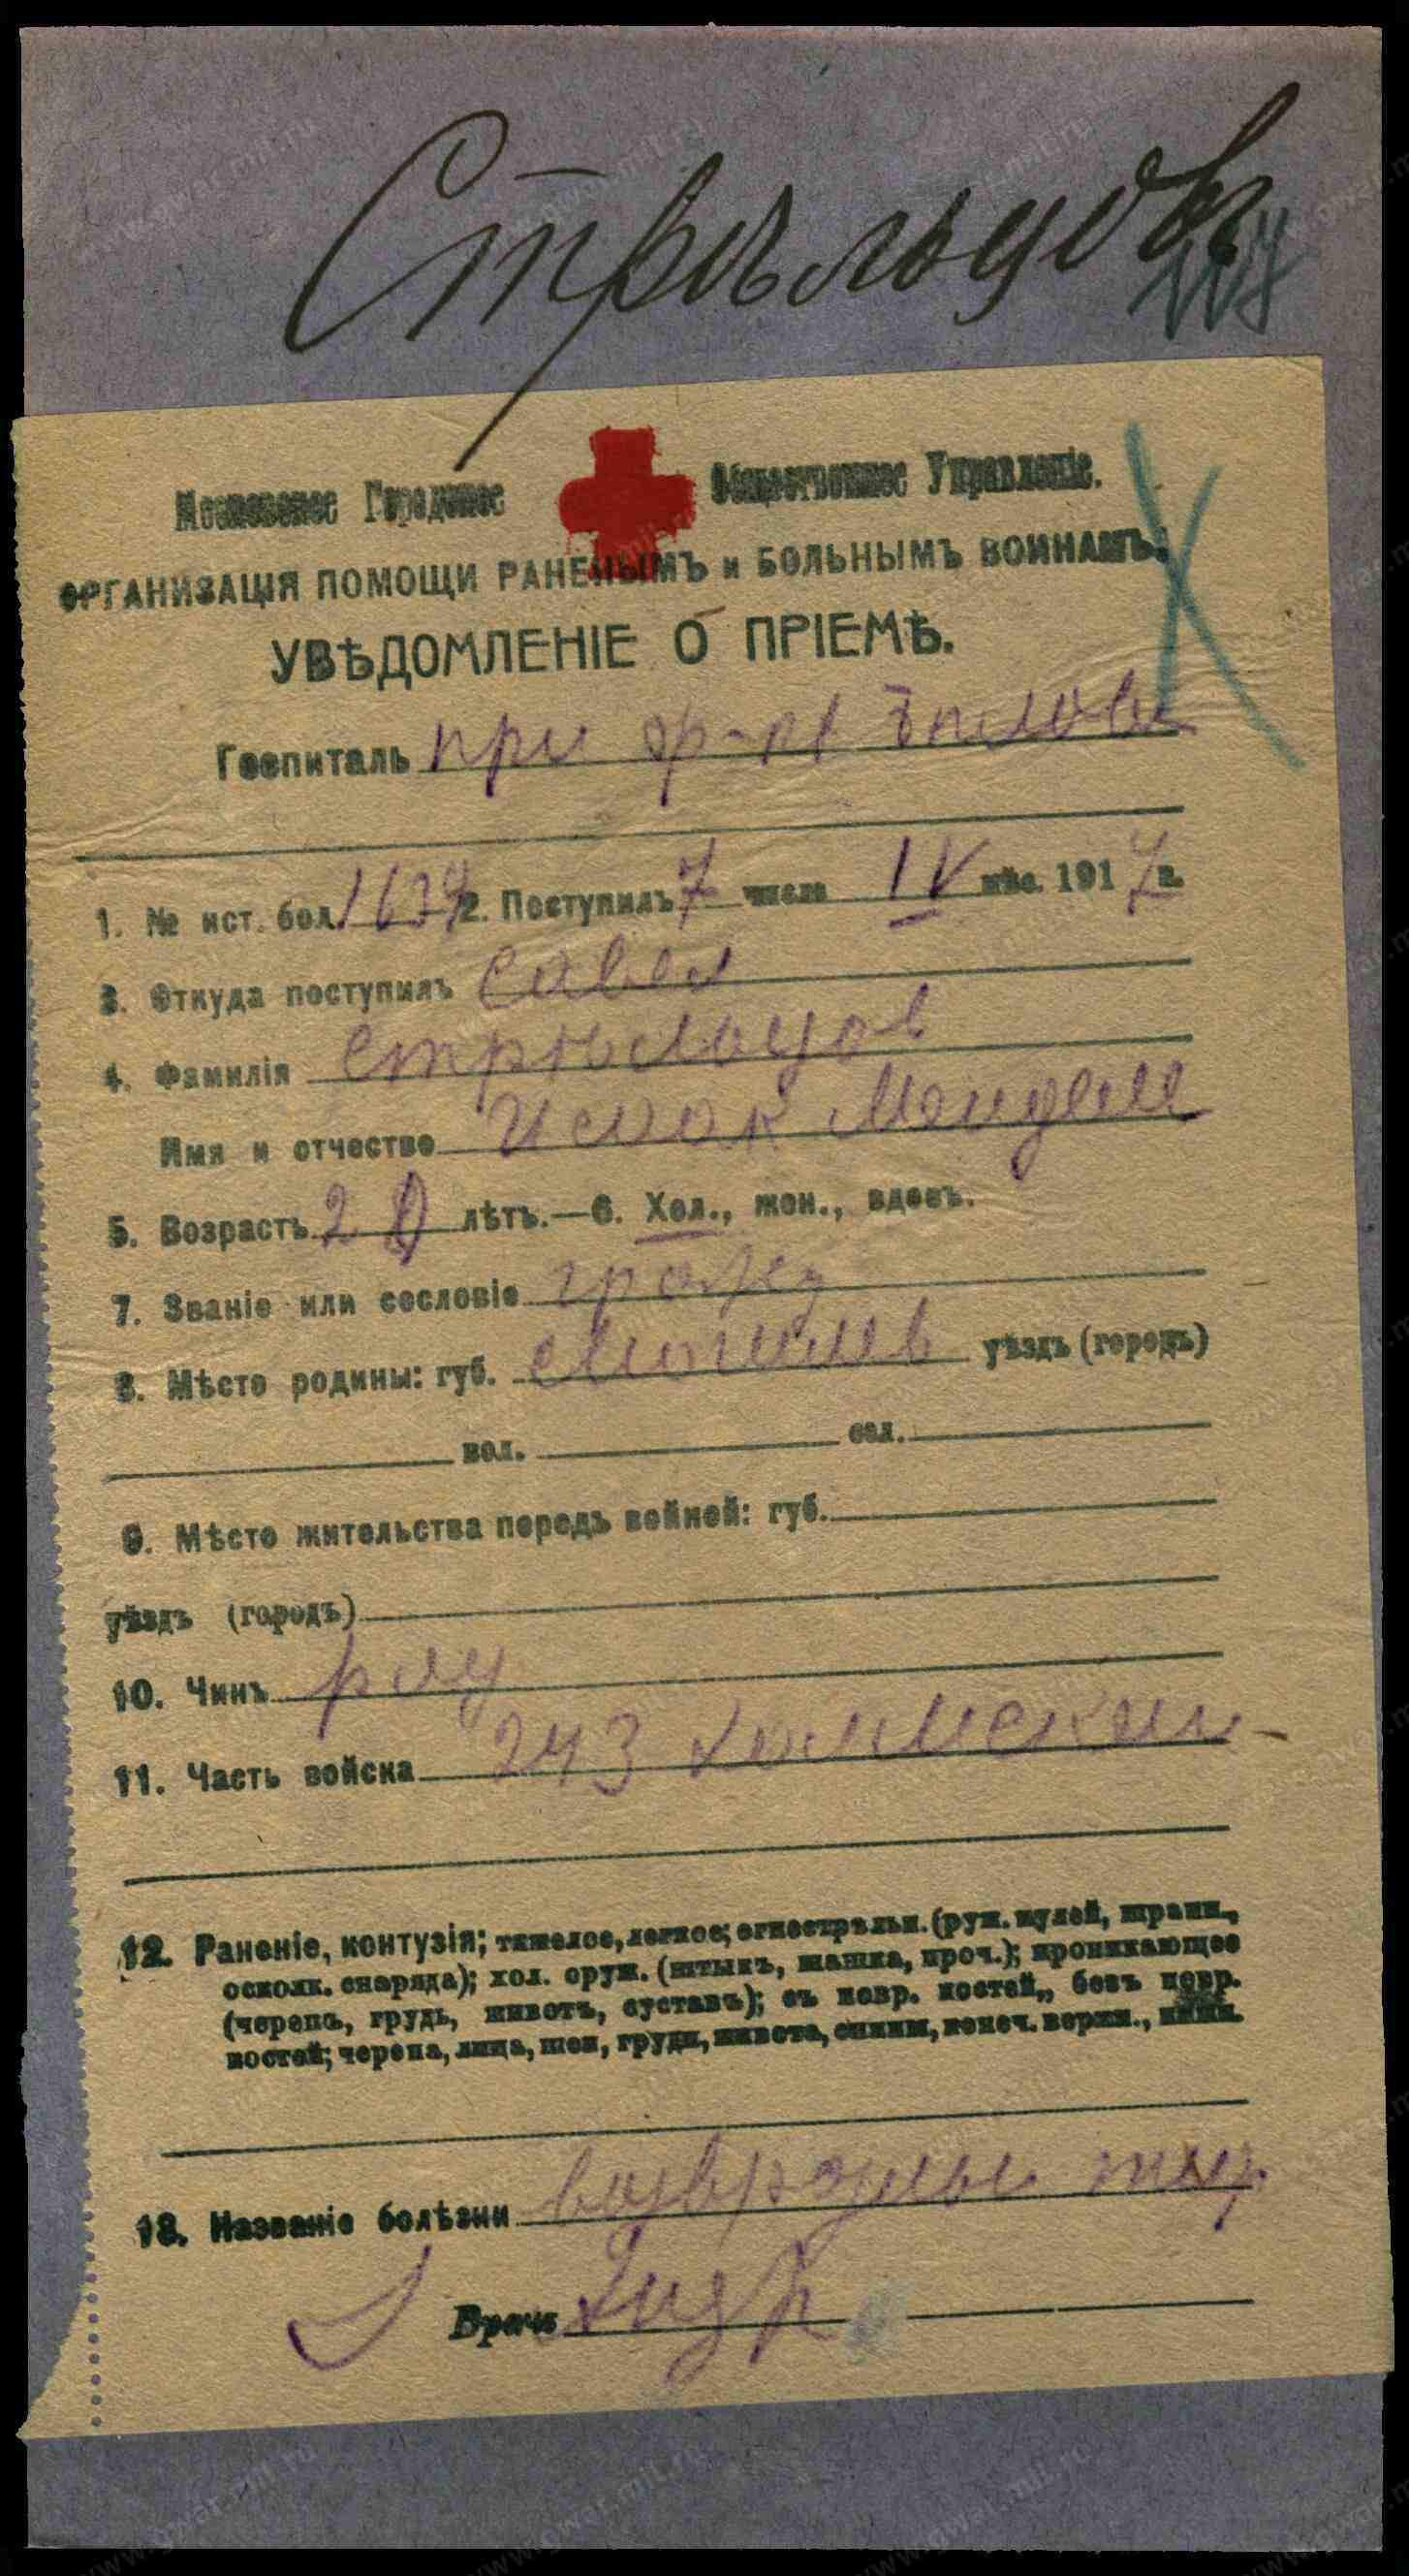 Стрѣльцовъ
Московское Городское Общественное Управленіе.
ОРГАНИЗАЦІЯ ПОМОЩИ РАНЕНЫМЪ и БОЛЬНЫМЪ ВОИНАМЪ.
УВѢДОМЛЕНІЕ О ПРІЕМѢ.
Госпиталь при ф-кѣ
1. № ист. бол. 1639 2. Поступилъ 7 числа IV мѣс. 1917 г.
3. Откуда поступилъ Савел
4. Фамилія Стрѣльцов
Имя и отчество Исаак Мендел
5. Возрастъ 20 лѣтъ.—6. Хол., жен., вдовъ.
7. Званіе или сословіе гражд
8. Мѣсто родины: губ. Могилев уѣздъ (городъ)
вол. сел.
9. Мѣсто жительства передъ войной: губ.
уѣздъ (городъ)
10. Чинъ ряд
11. Часть войска 243 Холмский
12. Раненіе, контузія; тяжелое, легкое; огнестрѣльн. (руж. пулей, шрапн.,
осколк. снаряда); хол. оруж. (штыкъ, шашка, проч.); проникающее
(черепъ, грудь, животъ, суставъ); съ повр. костей, безъ повр.
костей; черепа, лица, шеи, груди, живота, спины, конеч. верхн., нижн.
13. Названіе болѣзни возвратный тиф
Врачъ